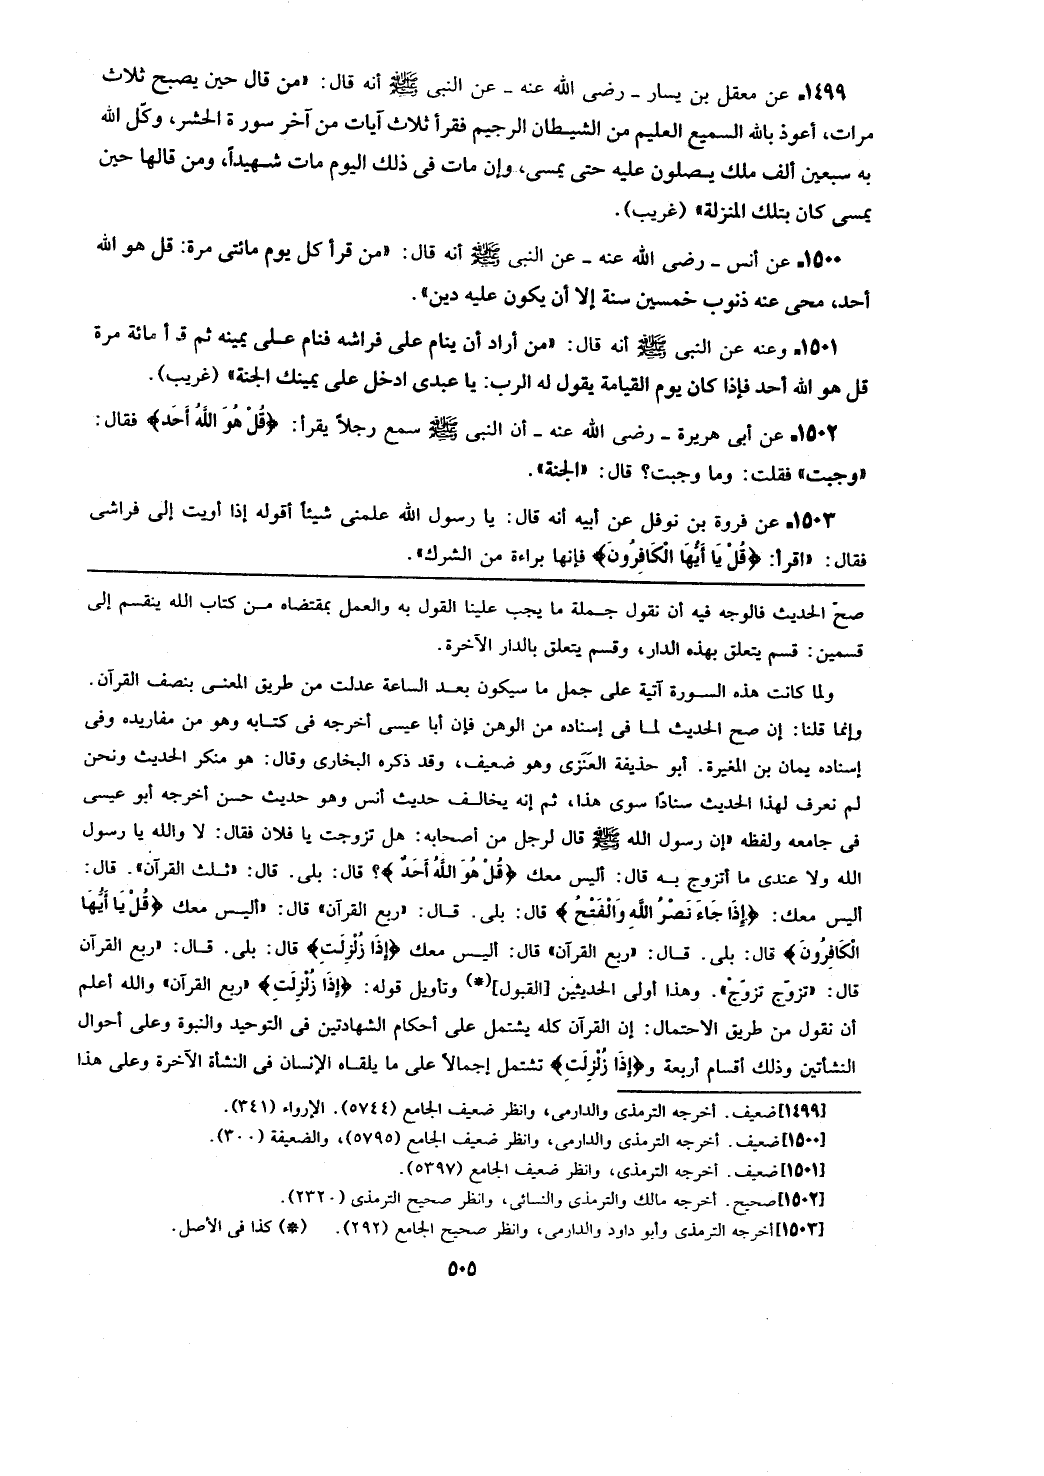 ١٤٩٩ـ عن معقل بن يسار ـ رضى الله عنه ـ عن النبى ﷺ أنه قال: «من قال حين يصبح ثلاث
مرات، أعوذ بالله السميع العليم من الشيطان الرجيم فقرأ ثلاث آيات من آخر سورة الحشر، وكّل الله
به سبعين ألف ملك يصلون عليه حتى يمسى، وإن مات فى ذلك اليوم مات شهيداً، ومن قالها حين
يمسى كان بتلك المنزلة» (غريب).
١٥٠٠ـ عن أنس ـ رضى الله عنه ـ عن النبى ﷺ أنه قال: «من قرأ كل يوم مائتى مرة: قل هو الله
أحد، محى عنه ذنوب خمسين سنة إلا أن يكون عليه دين».
١٥٠١ـ وعنه عن النبى ﷺ أنه قال: «من أراد أن ينام على فراشه فنام على يمينه ثم قـ أ مائة مرة
قل هو الله أحد فإذا كان يوم القيامة يقول له الرب: يا عبدى ادخل على يمينك الجنة» (غريب).
١٥٠٢ـ عن أبى هريرة ـ رضى الله عنه ـ أن النبى ﷺ سمع رجلاً يقرأ: ﴿قُلْ هُوَ اللَّهُ أَحَد﴾ فقال:
«وجبت» فقلت: وما وجبت؟ قال: «الجنة».
١٥٠٣ـ عن فروة بن نوفل عن أبيه أنه قال: يا رسول الله علمنى شيئاً أقوله إذا أويت إلى فراشى
فقال: «اقرأ: ﴿قُلْ يَا أَيُّهَا الْكَافِرُونَ﴾ فإنها براءة من الشرك».
صحّ الحديث فالوجه فيه أن نقول جملة ما يجب علينا القول به والعمل بمقتضاه من كتاب الله ينقسم إلى
قسمين: قسم يتعلق بهذه الدار، وقسم يتعلق بالدار الآخرة.
ولما كانت هذه السورة آتية على جمل ما سيكون بعد الساعة عدلت من طريق المعنى بنصف القرآن.
وإنما قلنا: إن صح الحديث لما فى إسناده من الوهن فإن أبا عيسى أخرجه فى كتابه وهو من مفاريده وفى
إسناده يمان بن المغيرة. أبو حذيفة العَنَزى وهو ضعيف، وقد ذكره البخارى وقال: هو منكر الحديث ونحن
لم نعرف لهذا الحديث سنادًا سوى هذا، ثم إنه يخالف حديث أنس وهو حديث حسن أخرجه أبو عيسى
فى جامعه ولفظه «إن رسول الله ﷺ قال لرجل من أصحابه: هل تزوجت يا فلان فقال: لا والله يا رسول
الله ولا عندى ما أتزوج به قال: أليس معك ﴿قُلْ هُوَ اللَّهُ أَحَدٌ﴾؟ قال: بلى. قال: «ثلث القرآن». قال:
أليس معك: ﴿إِذَا جَاءَ نَصْرُ اللَّهِ وَالْفَتْحُ﴾ قال: بلى. قال: «ربع القرآن» قال: «أليس معك ﴿قُلْ يَا أَيُّهَا
الْكَافِرُونَ﴾ قال: بلى. قال: «ربع القرآن» قال: أليس معك ﴿إِذَا زُلْزِلَتِ﴾ قال: بلى. قال: «ربع القرآن
قال: «تزوّج تزوّجْ». وهذا أولى الحديثين [القبول](*) وتأويل قوله: ﴿إِذَا زُلْزِلَتِ﴾ «ربع القرآن» والله أعلم
أن نقول من طريق الاحتمال: إن القرآن كله يشتمل على أحكام الشهادتين فى التوحيد والنبوة وعلى أحوال
النشأتين وذلك أقسام أربعة و﴿إِذَا زُلْزِلَتِ﴾ تشتمل إجمالاً على ما يلقاه الإنسان فى النشأة الآخرة وعلى هذا
[١٤٩٩] ضعيف. أخرجه الترمذى والدارمى، وانظر ضعيف الجامع (٥٧٤٤). الإرواء (٣٤١).
[١٥٠٠] ضعيف. أخرجه الترمذى والدارمى، وانظر ضعيف الجامع (٥٧٩٥)، والضعيفة (٣٠٠).
[١٥٠١] ضعيف. أخرجه الترمذى، وانظر ضعيف الجامع (٥٣٩٧).
[١٥٠٢] صحيح. أخرجه مالك والترمذى والنسائى، وانظر صحيح الترمذى (٢٣٢٠).
[١٥٠٣] أخرجه الترمذى وأبو داود والدارمى، وانظر صحيح الجامع (٢٩٢). (*) كذا فى الأصل.
٥٠٥